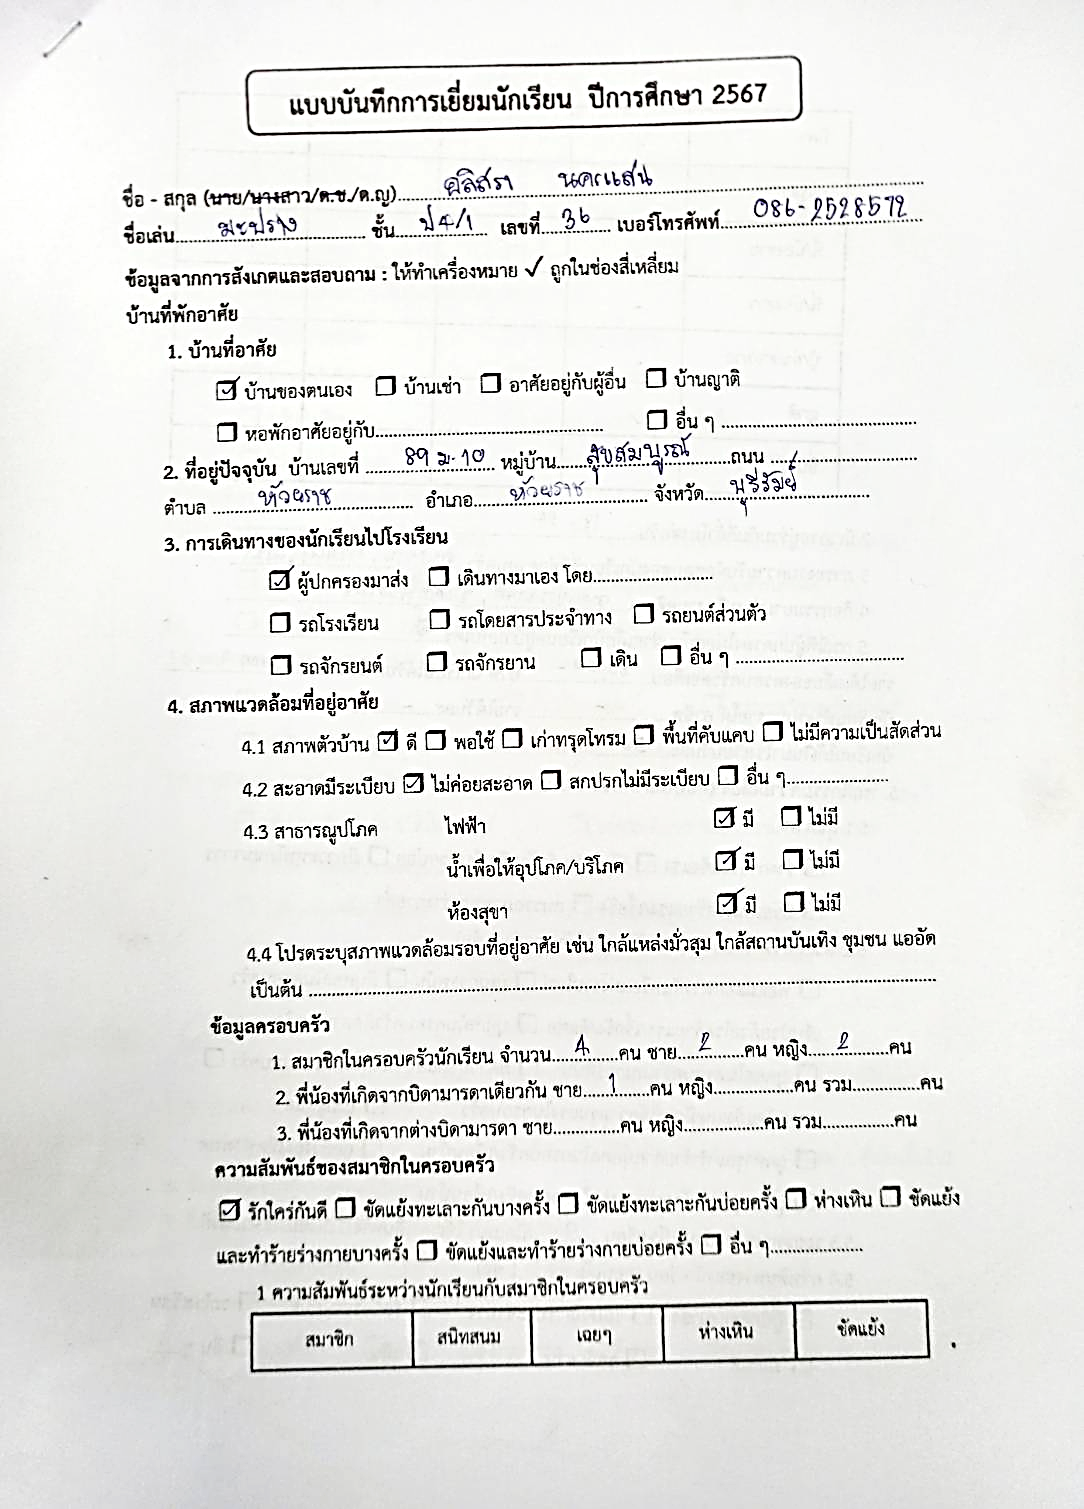 แบบบันทึกการเยี่ยมนักเรียน ปีการศึกษา 2567
ชื่อ - สกุล (นาย/นางสาว/ด.ช./ด.ญ)..........อลิสรา นครแสน..........
ชื่อเล่น..........มะปราง.......... ชั้น.....ป4/1..... เลขที่.....36..... เบอร์โทรศัพท์.....086-2528572.....
ข้อมูลจากการสังเกตและสอบถาม : ให้ทำเครื่องหมาย ✓ ถูกในช่องสี่เหลี่ยม
บ้านที่พักอาศัย
1. บ้านที่อาศัย
☑ บ้านของตนเอง ☐ บ้านเช่า ☐ อาศัยอยู่กับผู้อื่น ☐ บ้านญาติ
☐ หอพักอาศัยอยู่กับ.................... ☐ อื่น ๆ ....................
2. ที่อยู่ปัจจุบัน บ้านเลขที่ .....89 ม.10..... หมู่บ้าน.....สุขสมบูรณ์.....ถนน ....................
ตำบล .....ห้วยราช..... อำเภอ.....ห้วยราช..... จังหวัด.....บุรีรัมย์.....
3. การเดินทางของนักเรียนไปโรงเรียน
☑ ผู้ปกครองมาส่ง ☐ เดินทางมาเอง โดย....................
☐ รถโรงเรียน ☐ รถโดยสารประจำทาง ☐ รถยนต์ส่วนตัว
☐ รถจักรยนต์ ☐ รถจักรยาน ☐ เดิน ☐ อื่น ๆ ....................
4. สภาพแวดล้อมที่อยู่อาศัย
4.1 สภาพตัวบ้าน ☑ ดี ☐ พอใช้ ☐ เก่าทรุดโทรม ☐ พื้นที่คับแคบ ☐ ไม่มีความเป็นสัดส่วน
4.2 สะอาดมีระเบียบ ☑ ไม่ค่อยสะอาด ☐ สกปรกไม่มีระเบียบ ☐ อื่น ๆ....................
4.3 สาธารณูปโภค ไฟฟ้า ☑ มี ☐ ไม่มี
น้ำเพื่อให้อุปโภค/บริโภค ☑ มี ☐ ไม่มี
ห้องสุขา ☑ มี ☐ ไม่มี
4.4 โปรดระบุสภาพแวดล้อมรอบที่อยู่อาศัย เช่น ใกล้แหล่งมั่วสุม ใกล้สถานบันเทิง ชุมชน แออัด
เป็นต้น ....................
ข้อมูลครอบครัว
1. สมาชิกในครอบครัวนักเรียน จำนวน.....4.....คน ชาย.....2.....คน หญิง.....2.....คน
2. พี่น้องที่เกิดจากบิดามารดาเดียวกัน ชาย.....1.....คน หญิง..........คน รวม..........คน
3. พี่น้องที่เกิดจากต่างบิดามารดา ชาย..........คน หญิง..........คน รวม..........คน
ความสัมพันธ์ของสมาชิกในครอบครัว
☑ รักใคร่กันดี ☐ ขัดแย้งทะเลาะกันบางครั้ง ☐ ขัดแย้งทะเลาะกันบ่อยครั้ง ☐ ห่างเหิน ☐ ขัดแย้ง
และทำร้ายร่างกายบางครั้ง ☐ ขัดแย้งและทำร้ายร่างกายบ่อยครั้ง ☐ อื่น ๆ....................
1 ความสัมพันธ์ระหว่างนักเรียนกับสมาชิกในครอบครัว
สมาชิก สนิทสนม เฉยๆ ห่างเหิน ขัดแย้ง